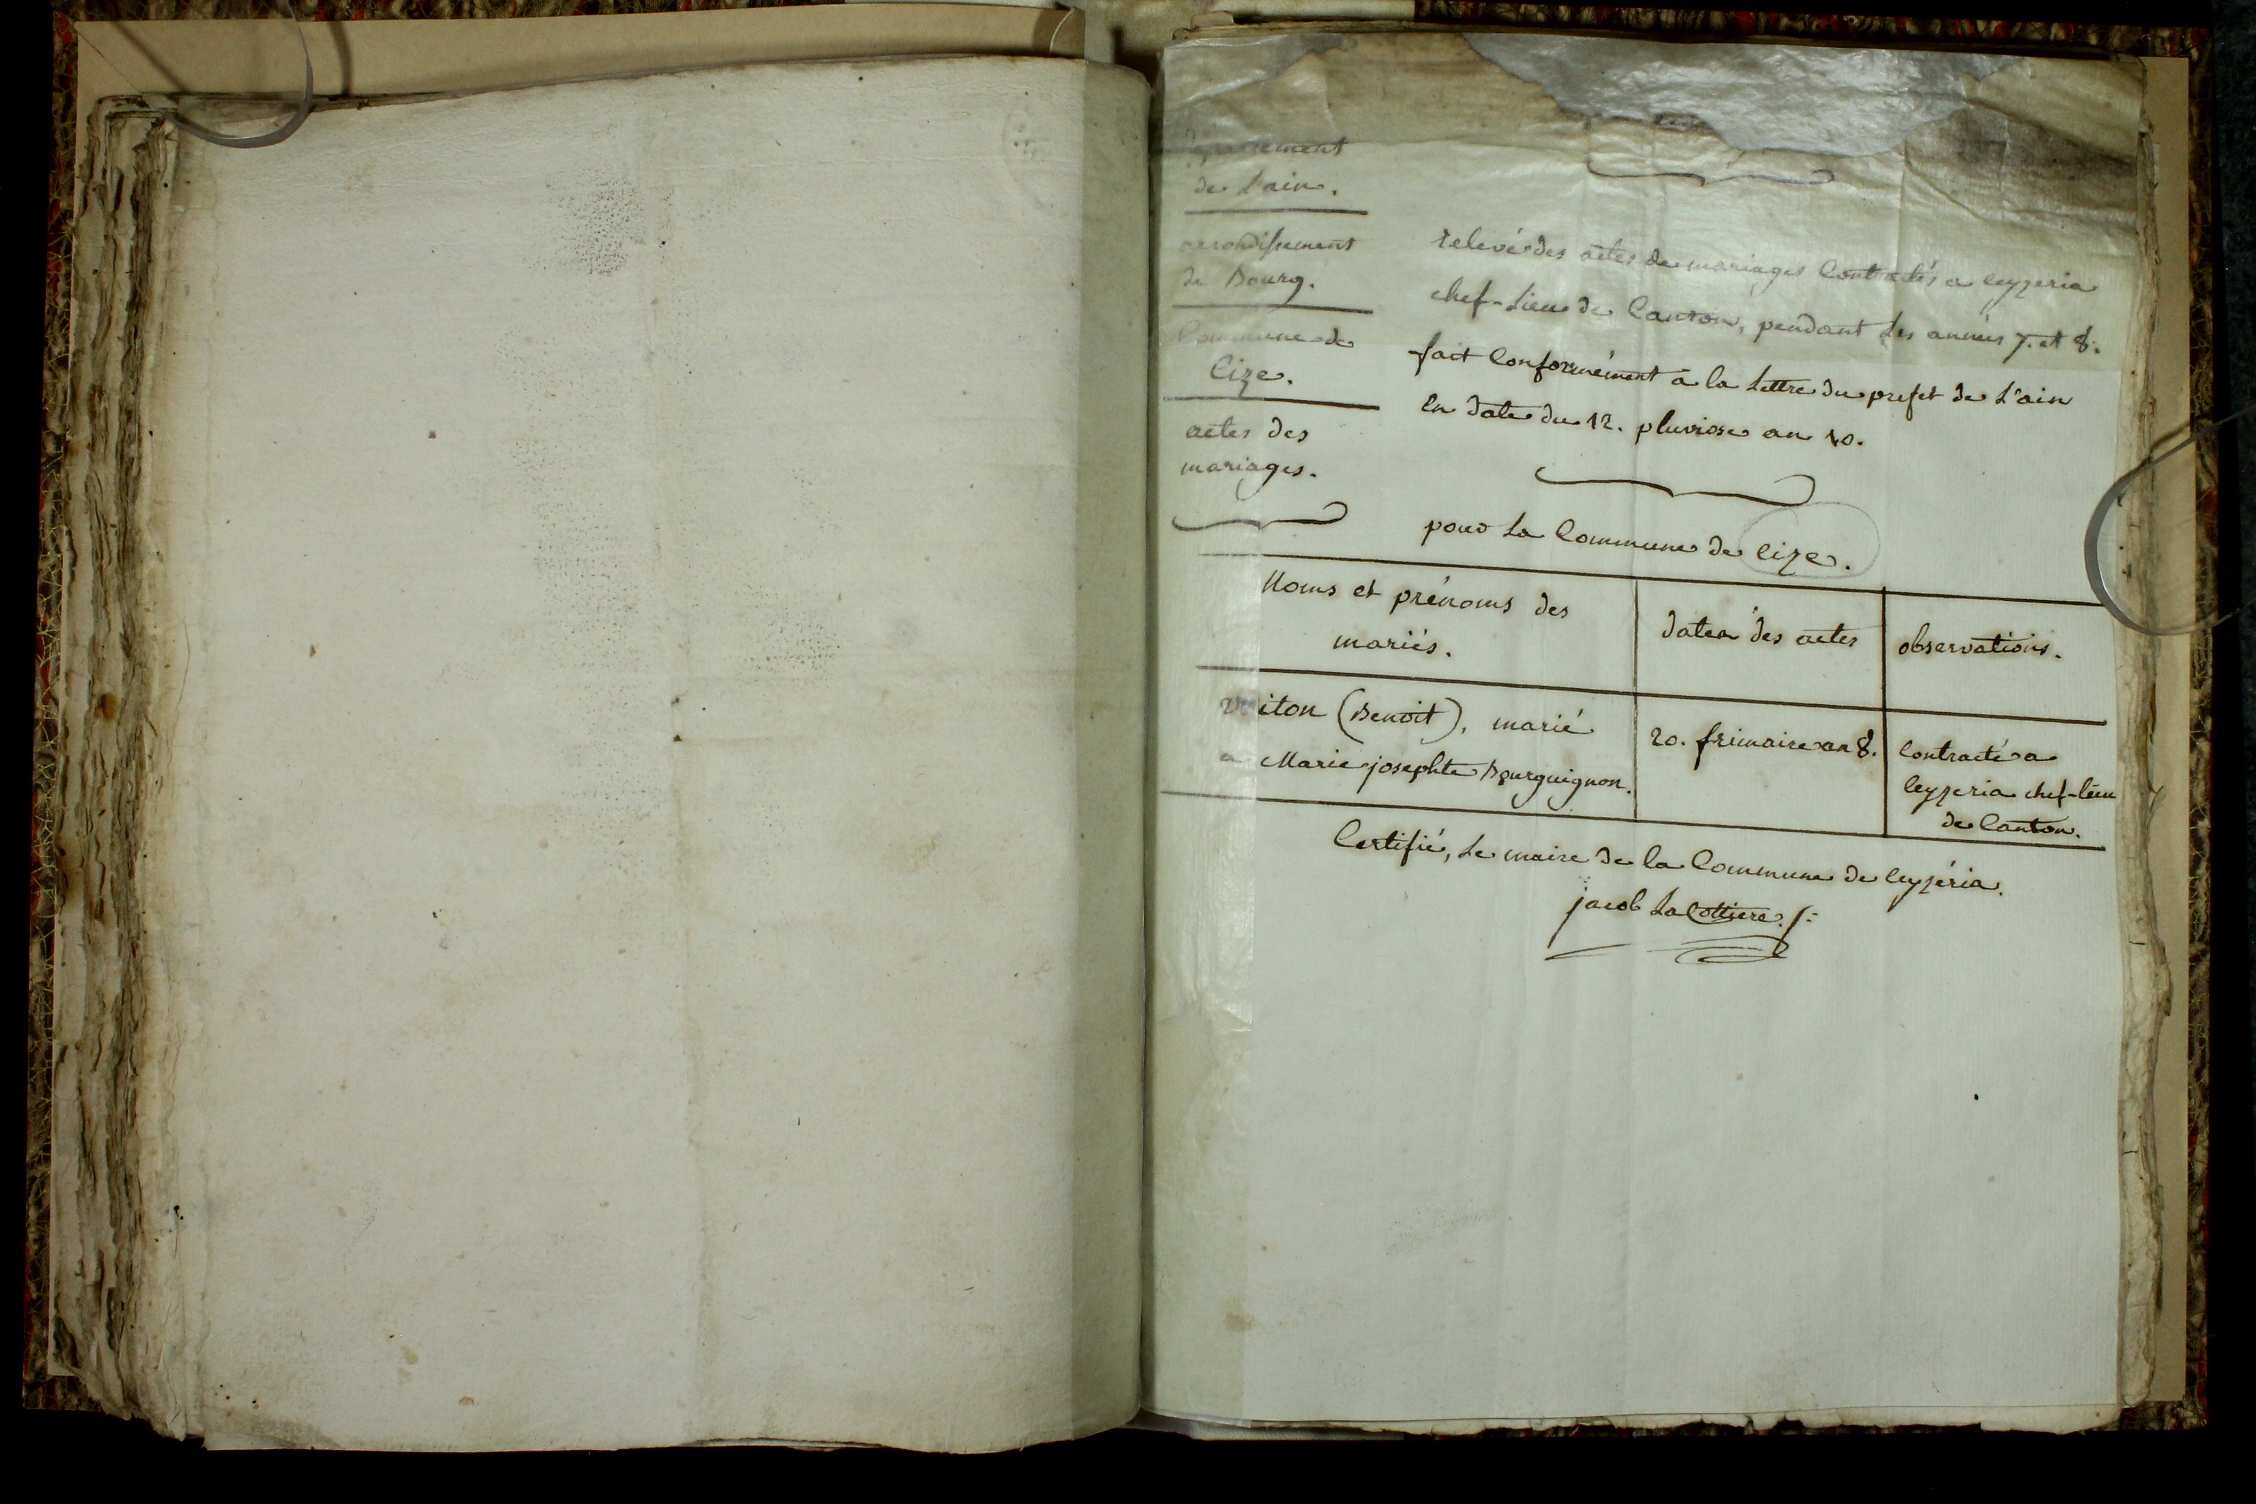 de L'ain.
arrondissement
de Bourg.
Commune de
Cize.
actes des
mariages.
relevé des actes de mariages Contractés a ceyzeria
chef-Lieu de Canton, pendant les années 7. et 8.
fait Conformément à la Lettre du prefet de L'ain
en date du 12. pluviose an 10.
pour La Commune de Cize.
Noms et prénoms des
mariés.
dates des actes
observations.
(Benoit), marié
a Marie josephte Bourguignon.
20. frimaire an 8.
Contracté a
Ceyzeria chef-lieu
de Canton.
Certifié, Le maire de la Commune de Ceyzéria.
jacob La Cottiere